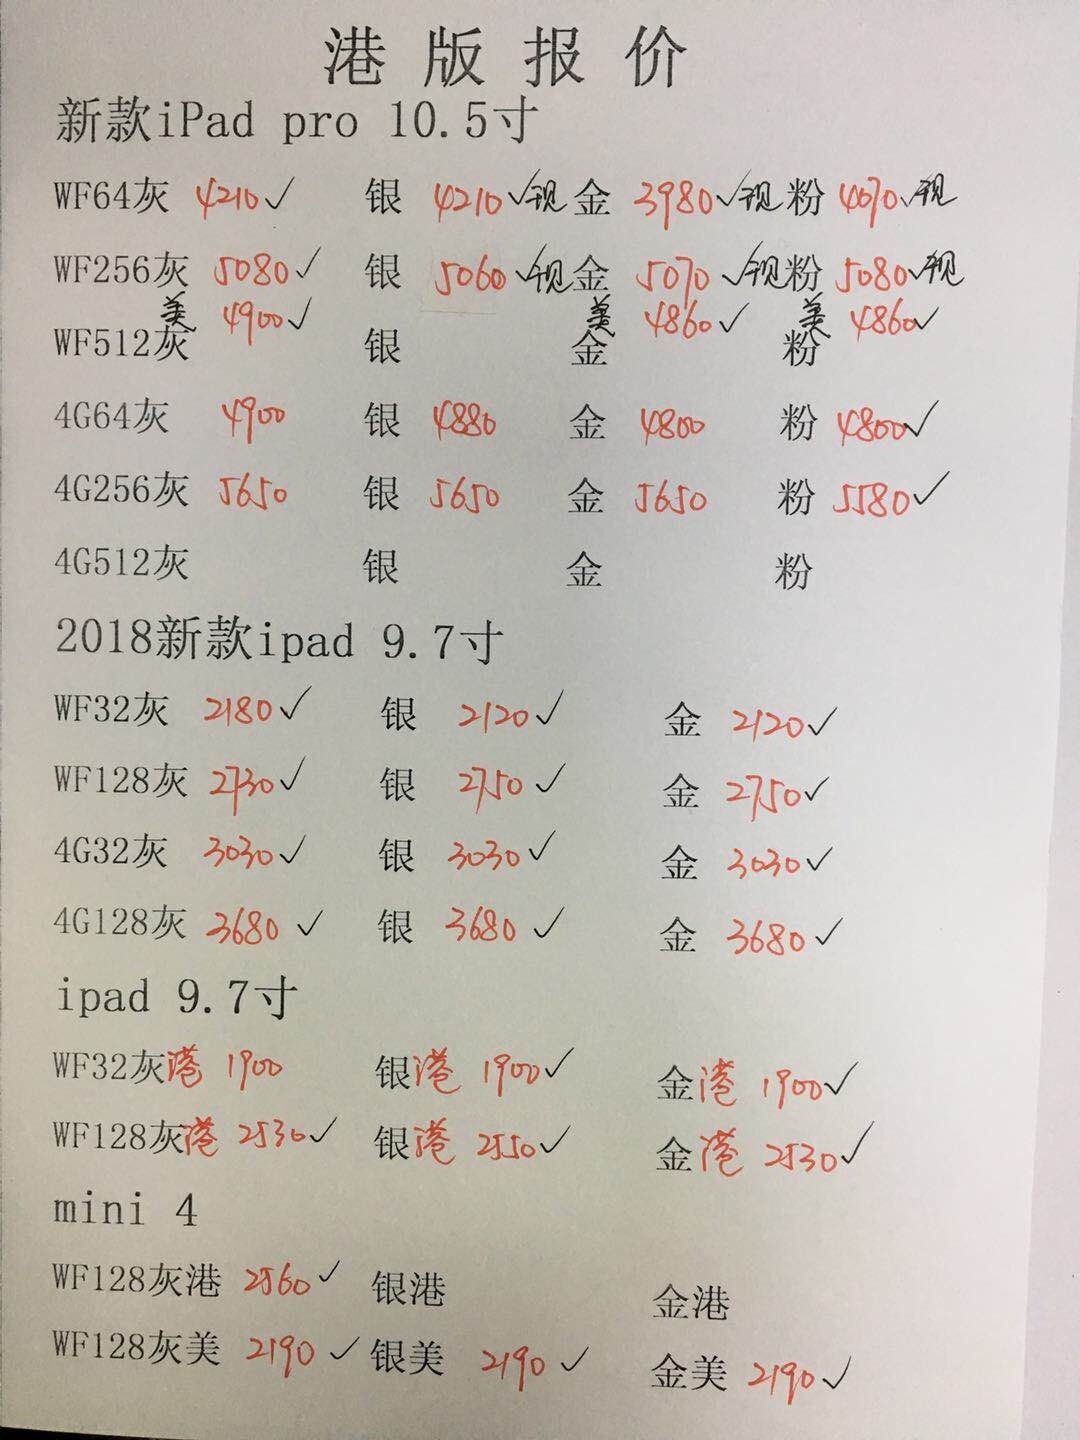 港版报价
新款iPad pro 10.5寸
WF64灰 4210✓ 银 4210✓现 金 3980✓现 粉 4070✓现
WF256灰 5080✓ 银 5060✓现 金 5070✓现 粉 5080✓现
美 4900✓ 美 4860✓ 美 4860✓
WF512灰 银 金 粉
4G64灰 4900 银 4880 金 4800 粉 4800✓
4G256灰 5650 银 5650 金 5650 粉 5580✓
4G512灰 银 金 粉
2018新款ipad 9.7寸
WF32灰 2180✓ 银 2120✓ 金 2120✓
WF128灰 2730✓ 银 2750✓ 金 2750✓
4G32灰 3030✓ 银 3030✓ 金 3030✓
4G128灰 3680✓ 银 3680✓ 金 3680✓
ipad 9.7寸
WF32灰港 1900 银港 1900✓ 金港 1900✓
WF128灰港 2530✓ 银港 2550✓ 金港 2530✓
mini 4
WF128灰港 2560✓ 银港 金港
WF128灰美 2190✓ 银美 2190✓ 金美 2190✓